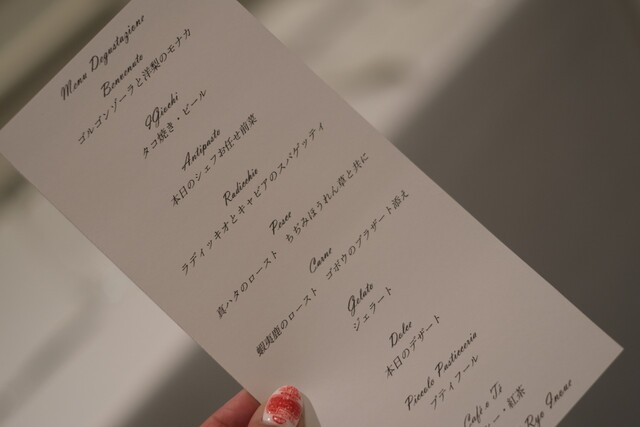 Menu Degustazione
Benvenuto
ゴルゴンゾーラと洋梨のモナカ
Giochi
タコ焼き・ビール
Antipasto
本日のシェフお任せ前菜
Radicchio
ラディッキオとキャビアのスパゲッティ
Pesce
真ハタのロースト ちぢみほうれん草と共に
Carne
蝦夷鹿のロースト ゴボウのブラザート添え
Gelato
ジェラート
Dolce
本日のデザート
Piccolo Pasticceria
プティフール
Caf e Te
ー・紅茶
Ryo Inoue